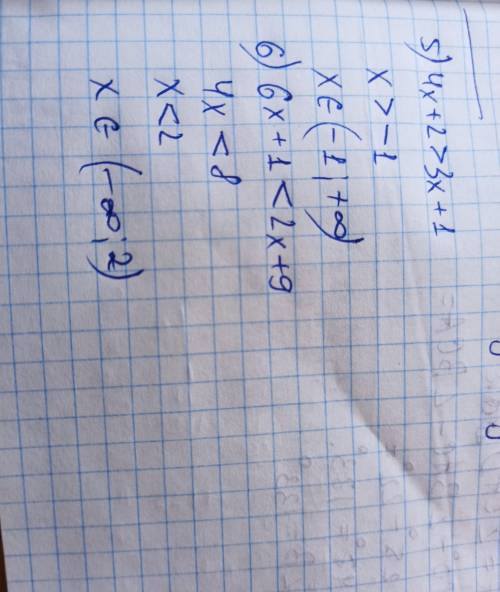 5) 4x+2>3x+1
x>-1
x∈(-1;+∞)
6) 6x+1<2x+9
4x<8
x<2
x∈(-∞;2)